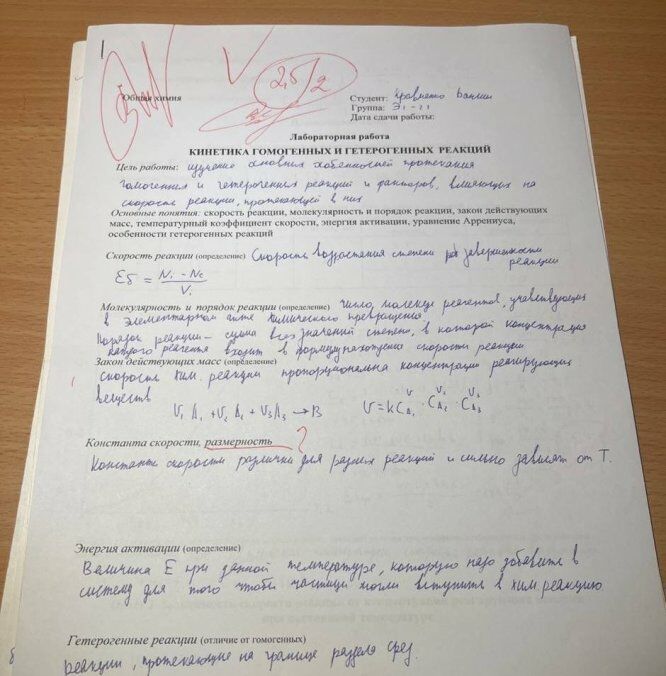 1
2,5/2
Общая химия
Студент:
Группа: Э1-21
Дата сдачи работы:
Лабораторная работа
КИНЕТИКА ГОМОГЕННЫХ И ГЕТЕРОГЕННЫХ РЕАКЦИЙ
Цель работы: изучение основных особенностей протекания
гомогенных и гетерогенных реакций и факторов, влияющих на
скорость реакции, протекающей в них
Основные понятия: скорость реакции, молекулярность и порядок реакции, закон действующих
масс, температурный коэффициент скорости, энергия активации, уравнение Аррениуса,
особенности гетерогенных реакций
Скорость реакции (определение) Скорость возрастания степени завершенности
реакции
Молекулярность и порядок реакции (определение) число молекул реагентов, участвующих
в элементарном акте химического превращения
Порядок реакции – сумма всех значений степени, в которой концентрация
каждого реагента входит в формулу нахождения скорости реакции
Закон действующих масс (определение)
скорость хим. реакции пропорциональна концентрации реагирующих
веществ
V₁A₁ + V₂A₂ + V₃A₃ → B
Константа скорости, размерность ?
Константы скорости различны для разных реакций и сильно зависят от T.
Энергия активации (определение)
Величина E при данной температуре, которую надо добавить в
систему для того чтобы частицы могли вступить в хим. реакцию
Гетерогенные реакции (отличие от гомогенных)
реакции, протекающие на границе раздела сред.